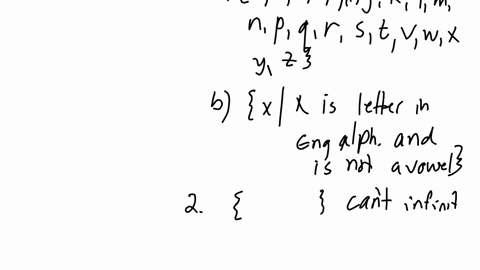 n, p, q, r, s, t, v, w, x
y, z }
b) { x | x is letter in
Eng alph. and
is not a vowel}
2. { } can't infinit